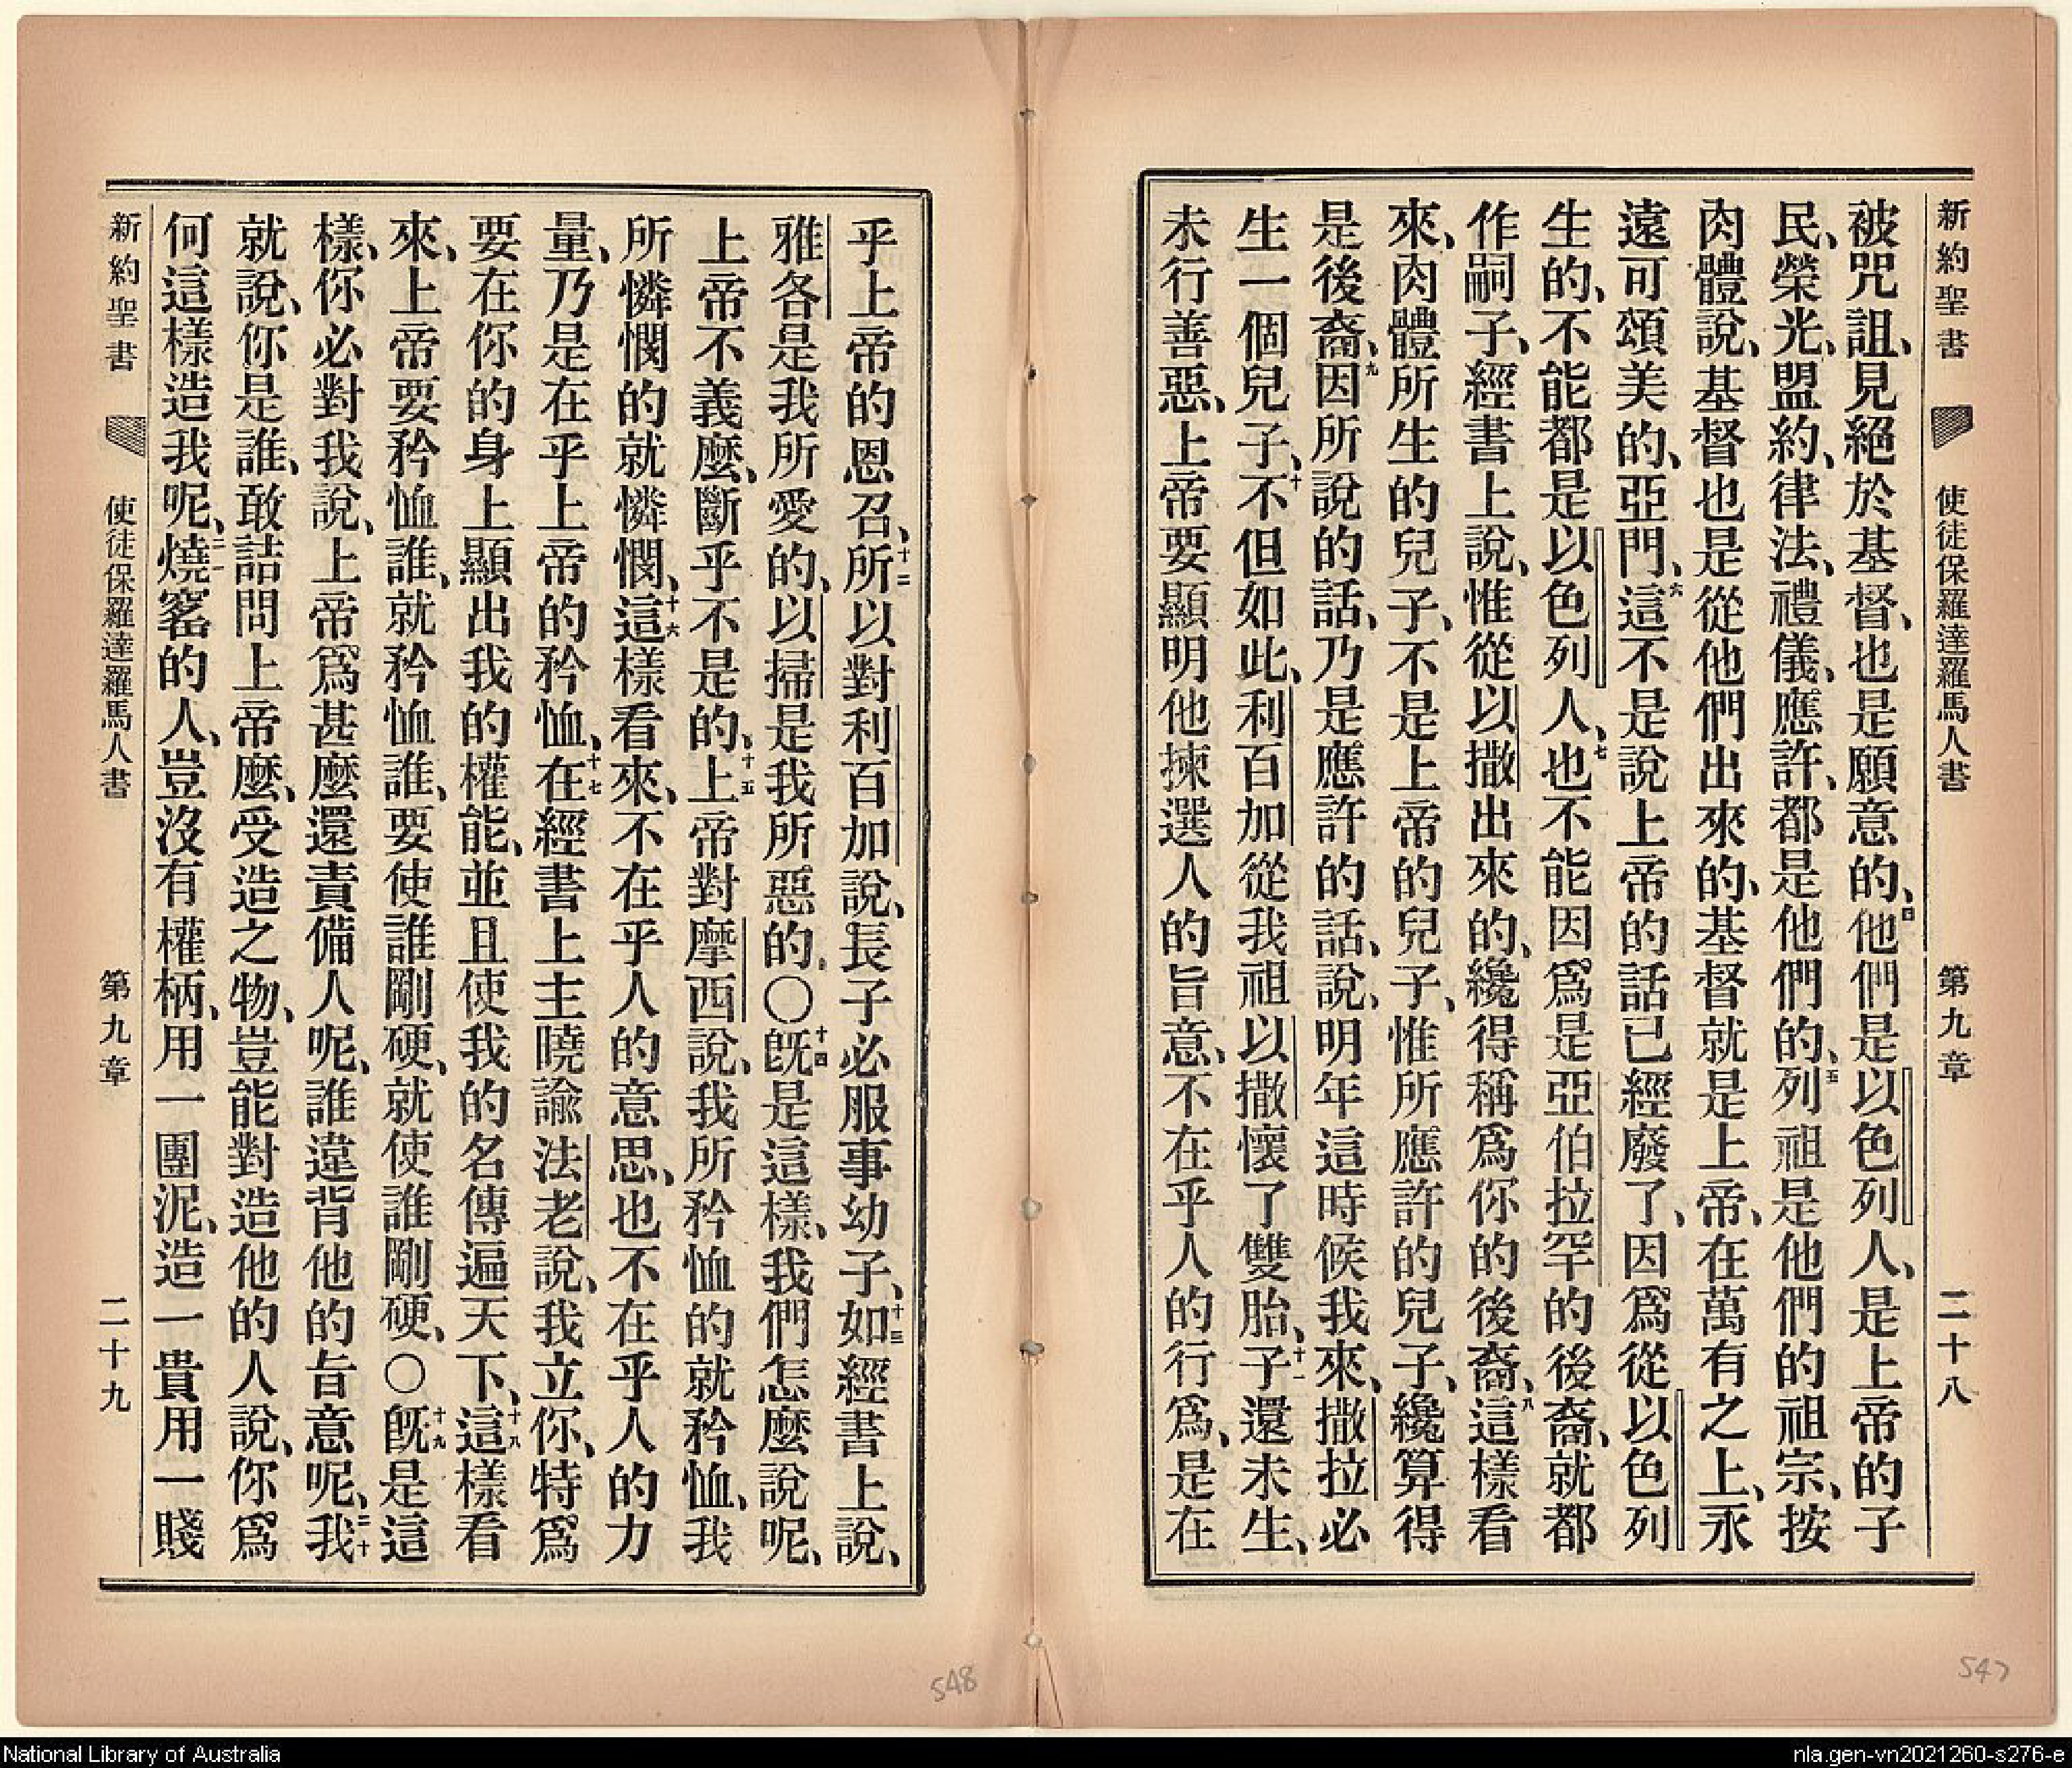 新約聖書 使徒保羅達羅馬人書 第九章 二十八
被咒詛、見絕於基督、也是願意的、四他們是以色列人、是上帝的子
民、榮光、盟約、律法、禮儀、應許、都是他們的、五列祖是他們的祖宗、按
肉體說、基督也是從他們出來的、基督就是上帝、在萬有之上、永
遠可頌美的、亞門、六這不是說上帝的話已經廢了、因爲從以色列
生的、不能都是以色列人、七也不能因爲是亞伯拉罕的後裔、就都
作嗣子、經書上說、惟從以撒出來的、纔得稱爲你的後裔、八這樣看
來、肉體所生的兒子、不是上帝的兒子、惟所應許的兒子、纔算得
是後裔、九因所說的話、乃是應許的話、說、明年這時候我來、撒拉必
生一個兒子、十不但如此、利百加從我祖以撒懷了雙胎、十一子還未生、
未行善惡、上帝要顯明他揀選人的旨意、不在乎人的行爲、是在
乎上帝的恩召、十二所以對利百加說、長子必服事幼子、十三如經書上說、
雅各是我所愛的、以掃是我所惡的。〇十四旣是這樣、我們怎麼說呢、
上帝不義麼、斷乎不是的、十五上帝對摩西說、我所矜恤的就矜恤、我
所憐憫的就憐憫、十六這樣看來、不在乎人的意思、也不在乎人的力
量、乃是在乎上帝的矜恤、十七在經書上主曉諭法老說、我立你、特爲
要在你的身上顯出我的權能、並且使我的名傳遍天下、十八這樣看
來、上帝要矜恤誰、就矜恤誰、要使誰剛硬、就使誰剛硬、〇十九旣是這
樣、你必對我說、上帝爲甚麼還責備人呢、誰違背他的旨意呢、二十我
就說、你是誰、敢詰問上帝麼、受造之物、豈能對造他的人說、你爲
何這樣造我呢、二一燒窰的人、豈沒有權柄、用一團泥、造一貴用一賤
新約聖書 使徒保羅達羅馬人書 第九章 二十九
548
547
National Library of Australia
nla.gen-vn2021260-s276-e